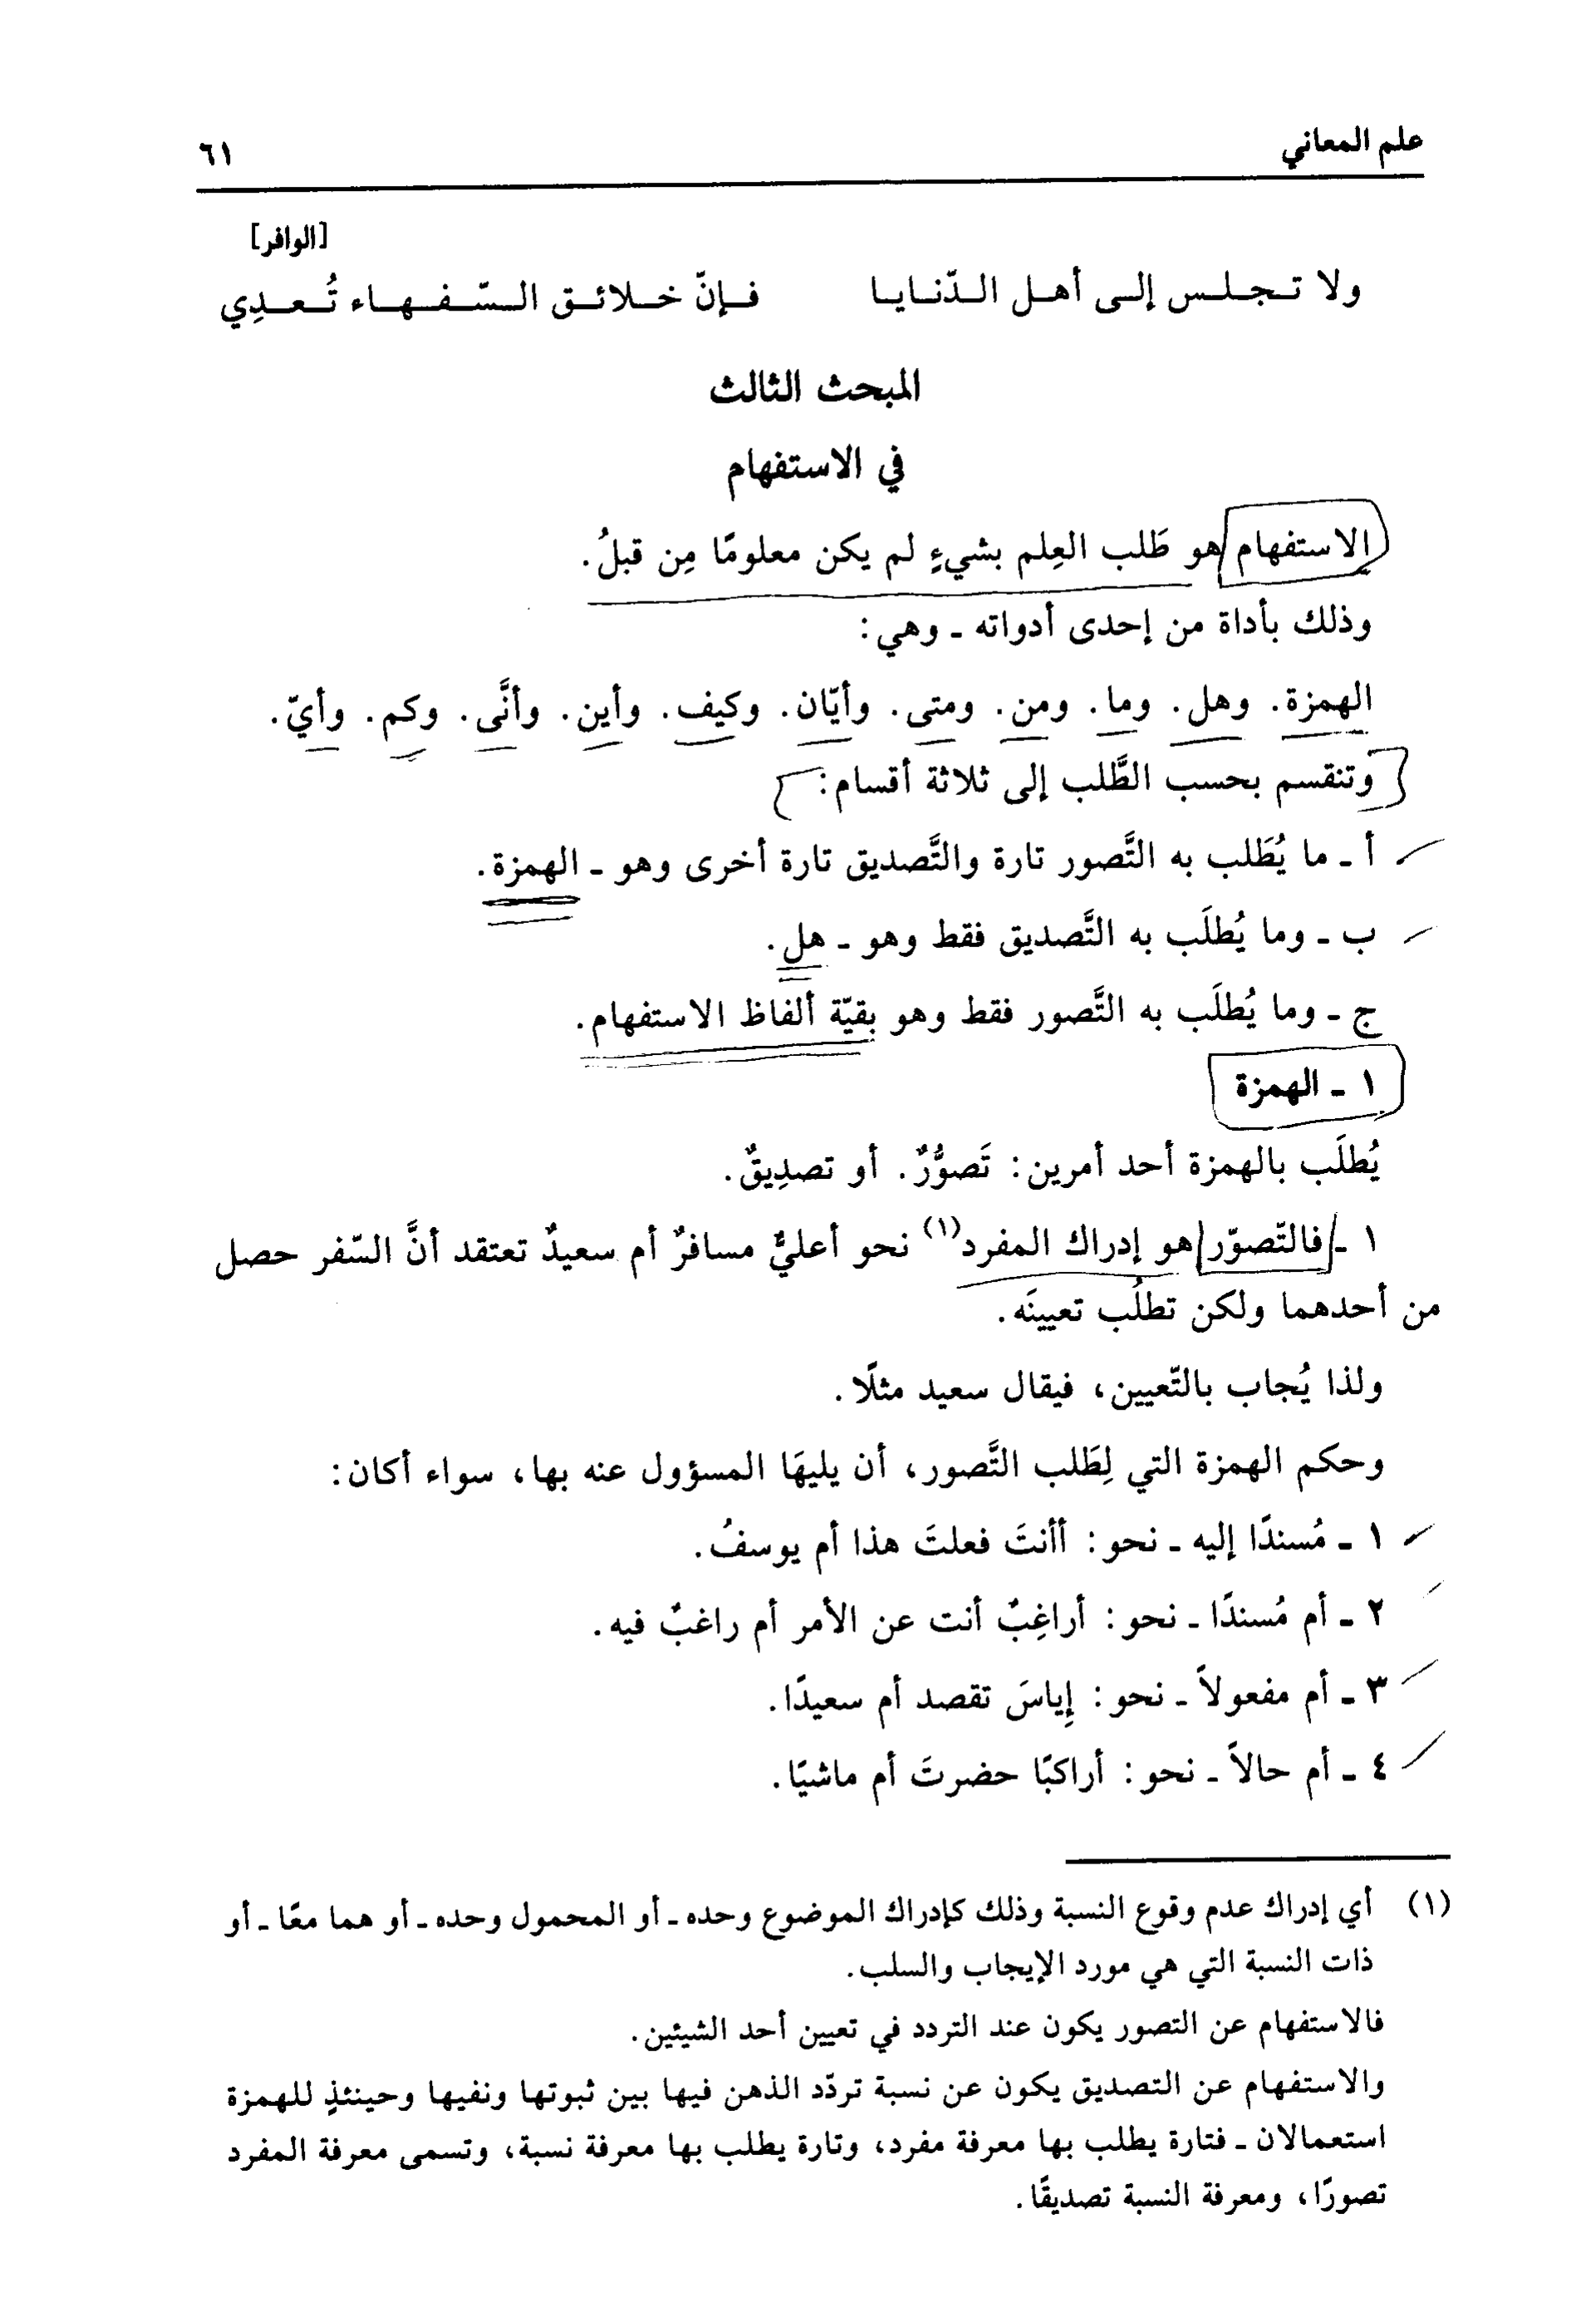 علم المعاني
٦١
[الوافر]
ولا تـجـلـس إلـى أهـل الـدّنـايـا فـإنّ خـلائـق الـسّـفـهـاء تُـعـدِي
المبحث الثالث
في الاستفهام
الاستفهام هو طَلب العِلم بشيءٍ لم يكن معلومًا مِن قبلُ.
وذلك بأداة من إحدى أدواته ـ وهي:
الهمزة. وهل. وما. ومن. ومتى. وأيّان. وكيف. وأين. وأنَّى. وكم. وأيّ.
وتنقسم بحسب الطَّلب إلى ثلاثة أقسام:
أ ـ ما يُطَلب به التَّصور تارة والتَّصديق تارة أخرى وهو ـ الهمزة.
ب ـ وما يُطلَب به التَّصديق فقط وهو ـ هل.
ج ـ وما يُطلَب به التَّصور فقط وهو بقيّة ألفاظ الاستفهام.
١ ـ الهمزة
يُطلَب بالهمزة أحد أمرين: تَصوُّرٌ. أو تصدِيقٌ.
١ ـ فالتّصوّر هو إدراك المفرد(١) نحو أعليٌّ مسافرٌ أم سعيدٌ تعتقد أنَّ السّفر حصل
من أحدهما ولكن تطلُب تعيينَه.
ولذا يُجاب بالتّعيين، فيقال سعيد مثلًا.
وحكم الهمزة التي لِطَلب التَّصور، أن يليهَا المسؤول عنه بها، سواء أكان:
١ ـ مُسندًا إليه ـ نحو: أأنتَ فعلتَ هذا أم يوسفُ.
٢ ـ أم مُسندًا ـ نحو: أراغِبٌ أنت عن الأمر أم راغبٌ فيه.
٣ ـ أم مفعولاً ـ نحو: إِياسَ تقصد أم سعيدًا.
٤ ـ أم حالاً ـ نحو: أراكبًا حضرتَ أم ماشيًا.
(١) أي إدراك عدم وقوع النسبة وذلك كإدراك الموضوع وحده ـ أو المحمول وحده ـ أو هما معًا ـ أو
ذات النسبة التي هي مورد الإيجاب والسلب.
فالاستفهام عن التصور يكون عند التردد في تعيين أحد الشيئين.
والاستفهام عن التصديق يكون عن نسبة تردّد الذهن فيها بين ثبوتها ونفيها وحينئذٍ للهمزة
استعمالان ـ فتارة يطلب بها معرفة مفرد، وتارة يطلب بها معرفة نسبة، وتسمى معرفة المفرد
تصورًا، ومعرفة النسبة تصديقًا.